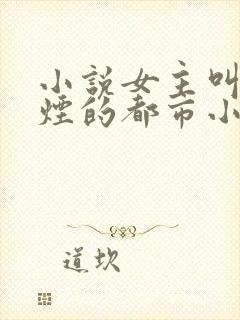 小說女主叫
煙的都市小
道坎